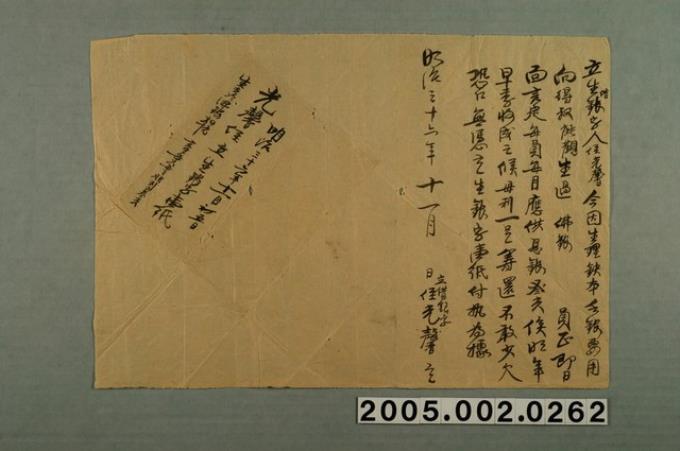 立生銀字人侄光聲今因生理缺本乏銀費用
借
向得叔能朝生過 佛銀 員正即日
面言定每員每月應供息銀 侯明年
早季收成之候母利一足籌還不敢少欠
恐口無憑立生銀字壹紙付執為據
明治三十六年十一月 日
立借銀字
侄光聲立
明治三十六年十一月初五日
光聲侄立生銀字壹紙
生
2005.002.0262